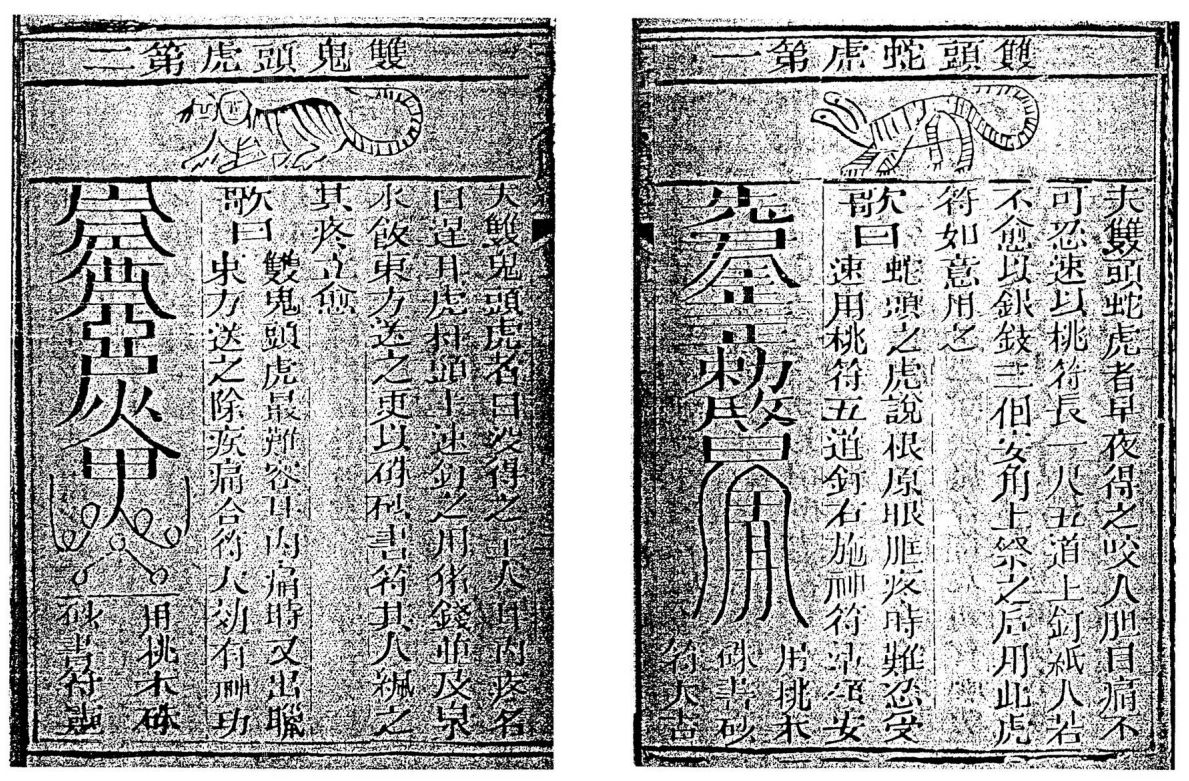 雙頭蛇虎第一
夫雙頭蛇虎者早夜得之咬人胆目痛不
可忍速以桃符長一尺五道上釘紙人若
不愈以銀錢三佰安角上祭之后用此虎
符如意用之
歌曰
蛇頭之虎說根原眼眶疼時難忍受
速用桃符五道釘右施神符安
用桃木
硃書砂
符大吉
雙鬼頭虎第二
夫雙鬼頭虎者日没得之主人耳内疼名
曰逞耳虎柱頭上速釘之用猪錢並及泉
水飯東方送之更以硃砂書符其人佩之
其疼立愈
歌曰
雙鬼頭虎最難容耳内痛時又出膿
東方送之除疾痛合符大効有神功
用桃木硃
砂書符